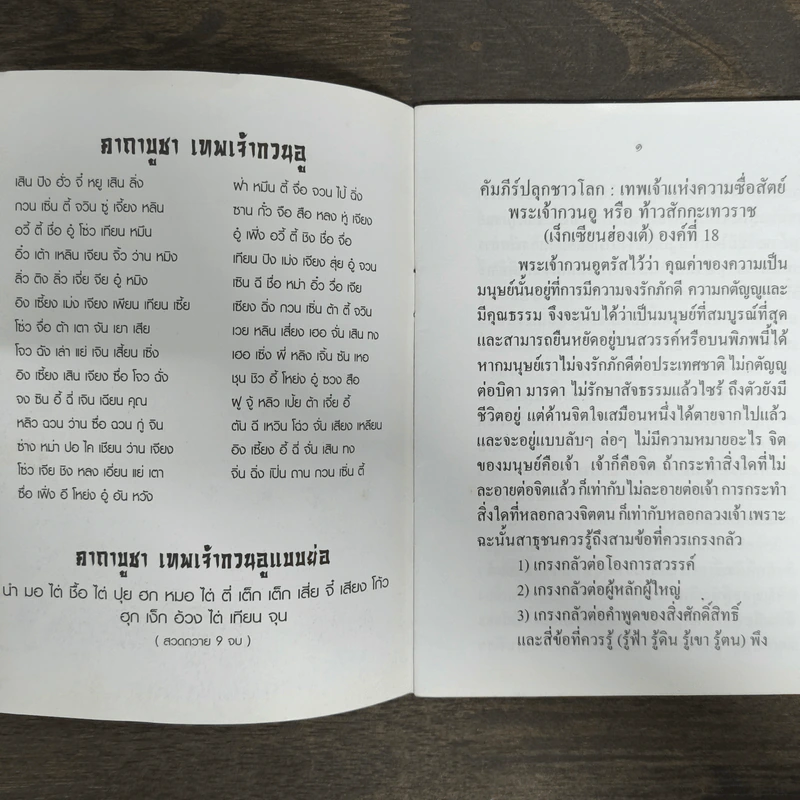 คาถาบูชา เทพเจ้ากวนอู
เสิน ปิง ฮั่ว จี๋ หยู เสิน ลิ่ง
กวน เซิ่น ตี้ จวิน ซู่ เจี้ยง หลิน
อวี้ ตี้ ชื่อ อู๋ โซ่ว เทียน หมืน
อิ๋ว เต้า เหลิน เจียน จิ้ว ว่าน หมิง
ลิ่ว ติง ลิ่ว เจี่ย จีย อู๋ หมิง
อิง เซี้ยง เม่ง เจียง เพียน เทียน เซี้ย
โซ่ว จื่อ ต้า เตา จัน เยา เสีย
โจว ฉัง เล่า แย่ เจิน เสี้ยน เซิ่ง
อิง เซี้ยง เสิน เจียง ซื่อ โจว ฉั่ง
จง ซิน อี้ ฉี่ เจิน เฉียน คุณ
หลิว ฉวน ว่าน ซื่อ ฉวน กู่ จิน
ซ่าง หม่า ปอ ไค เซียน ว่าน เจียง
โซ่ว เจีย ชิง หลง เอี่ยน แย่ เตา
ซื่อ เฟิ่ง อี โหย่ง อู่ อัน หวัง
ฝา หมืน ตี้ จื่อ จวน ไป้ ฉิ่ง
ซาน กั่ว จือ สือ หลง หู่ เจียง
อู๋ เฟิ่ง อวี้ ตี้ ชิง ชื่อ จื่อ
เทียน ปิง เม่ง เจียง สุ่ย อู๋ จวน
เซิน ฉี ซื่อ หม่า อิ๋ว วื่อ เจีย
เซียง ฉิ่ง กวน เซิ่น ต้า ตี้ จวิน
เวย หลิน เสี่ยง เฮอ จั่น เสิน ทง
เฮอ เซิ่ง พี่ หลิง เจิ้น ซัน เหอ
ชุน ชิว อี้ โหย่ง อู๋ ซวง สือ
ฟู จู๋ หลิว เปี้ย ต้า เจี่ย อี้
ตัน ฉี เหวิน โฉ่ว จั่น เสียง เหลียน
อิง เซี้ยง อี้ ฉี่ จั่น เสิน ทง
จิ่น ฉิ่ง เปิ่น ถาน กวน เซิ่น ตี้
คาถาบูชา เทพเจ้ากวนอูแบบย่อ
นำ มอ ไต๋ ชื้อ ไต๋ ปุย ฮก หมอ ไต๋ ตี่ เต็ก เต็ก เสี่ย จี๋ เสียง โก้ว
ฮุก เง็ก อ้วง ไต๋ เทียน จุน
( สวดถวาย 9 จบ )
๑
คัมภีร์ปลุกชาวโลก : เทพเจ้าแห่งความซื่อสัตย์
พระเจ้ากวนอู หรือ ท้าวสักกะเทวราช
(เง็กเซียนฮ่องเต้) องค์ที่ 18
พระเจ้ากวนอูตรัสไว้ว่า คุณค่าของความเป็น
มนุษย์นั้นอยู่ที่การมีความจงรักภักดี ความกตัญญูและ
มีคุณธรรม จึงจะนับได้ว่าเป็นมนุษย์ที่สมบูรณ์ที่สุด
และสามารถยืนหยัดอยู่บนสวรรค์หรือบนพิภพนี้ได้
หากมนุษย์เราไม่จงรักภักดีต่อประเทศชาติ ไม่กตัญญู
ต่อบิดา มารดา ไม่รักษาสัจธรรมแล้วไซร้ ถึงตัวยังมี
ชีวิตอยู่ แต่ด้านจิตใจเสมือนหนึ่งได้ตายจากไปแล้ว
และจะอยู่แบบลับๆ ล่อๆ ไม่มีความหมายอะไร จิต
ของมนุษย์คือเจ้า เจ้าก็คือจิต ถ้ากระทำสิ่งใดที่ไม่
ละอายต่อจิตแล้ว ก็เท่ากับไม่ละอายต่อเจ้า การกระทำ
สิ่งใดที่หลอกลวงจิตตน ก็เท่ากับหลอกลวงเจ้า เพราะ
ฉะนั้นสาธุชนควรรู้ถึงสามข้อที่ควรเกรงกลัว
1) เกรงกลัวต่อโองการสวรรค์
2) เกรงกลัวต่อผู้หลักผู้ใหญ่
3) เกรงกลัวต่อคำพูดของสิ่งศักดิ์สิทธิ์
และสี่ข้อที่ควรรู้ (รู้ฟ้า รู้ดิน รู้เขา รู้ตน) พึง